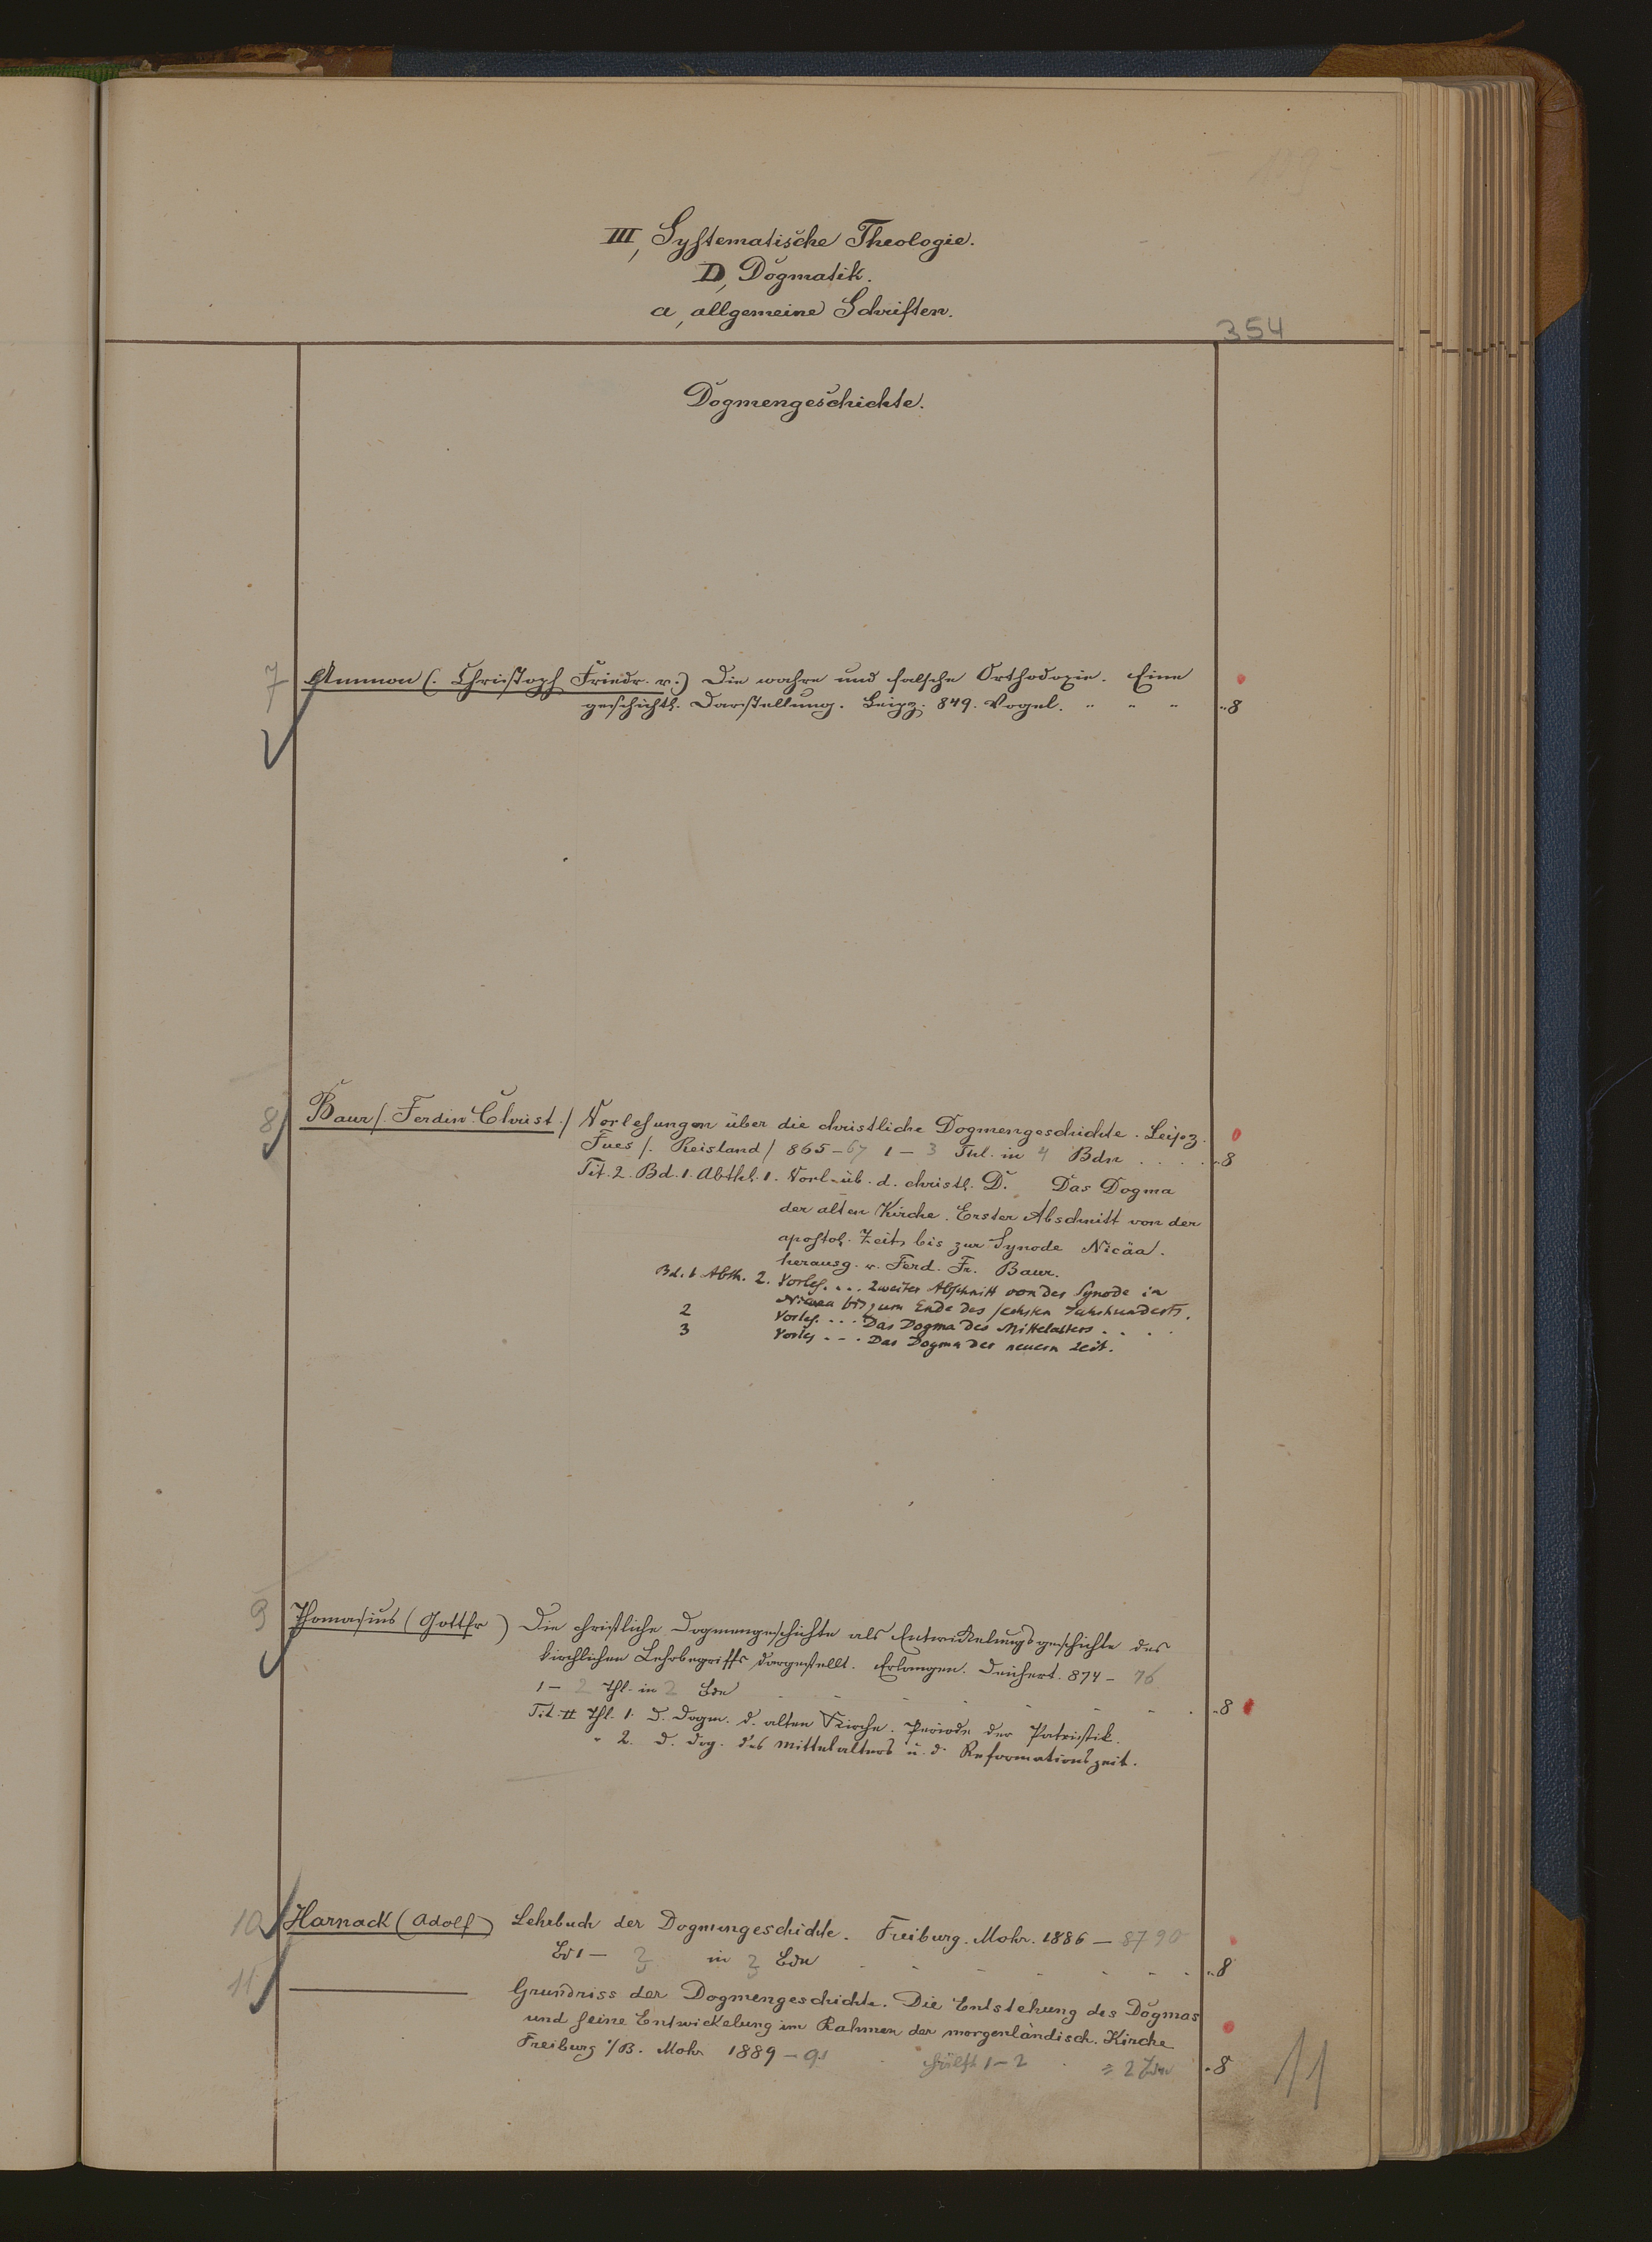 III, Systematische Theologie.
D, Dogmatik.
a, allgemeine Schriften.
354
Dogmengeschichte.
7 Ammon (. Christoph Friedr. v.) Die wahre und falsche Orthodoxie. Eine
geschichtl. Darstellung. Leipz. 849. Vogel. " " " "8
8 Baur /. Ferdin. Christ. / Vorlesungen über die christliche Dogmengeschichte. Leipz.
Fues /. Reisland / 865 - 67 1 - 3 Thl. in 4 Bdn . . . . "8
Tit. 2. Bd. 1. Abthl. 1. Vorl. üb. d. christl. D. Das Dogma
der alten Kirche. Erster Abschnitt von der
apostol. Zeit bis zur Synode Nicäa.
herausg. v. Ferd. Fr. Baur.
Bd. 1 Abth. 2. Vorles. . . . Zweiter Abschnitt von der Synode in
Nicaea bis zum Ende des sechsten Jahrhunderts.
2 Vorles. . . . Das Dogma des Mittelalters . . . .
3 Vorles . - . Das Dogma der neuern Zeit.
9 Thomasius (Gottfr ) Die christliche Dogmengeschichte als Entwickelungsgeschichte des
kirchlichen Lehrbegriffs dargestellt. Erlangen. Deichert. 874 - 76
1 - 2 Thl. in 2 Bdn "8
Tit. II Thl. 1. D. Dogm. d. alten Kirche. Periode der Patristik.
" 2. D. Dog. des Mittelalters u. d. Reformationszeit.
10 Harnack (Adolf) Lehrbuch der Dogmengeschichte. Freiburg. Mohr. 1886 - 87 90
Bd 1 - 3 in 3 Bdn "8
11 ——— Grundriss der Dogmengeschichte. Die Entstehung des Dogmas
und seine Entwickelung im Rahmen der morgenländisch. Kirche
Freiburg i/B. Mohr 1889 - 91 Hälfte 1 - 2 = 2 Bde "8
11